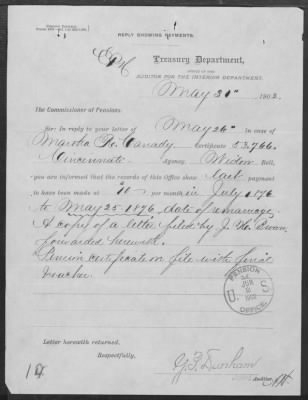 REPLY SHOWING PAYMENTS.
Treasury Department,
OFFICE OF THE
AUDITOR FOR THE INTERIOR DEPARTMENT.
May 31st 1902.
The Commissioner of Pensions.
Sir: In reply to your letter of May 26th in case of
Martha R. Canady, Certificate 53,766,
Cincinnati agency, Widow Roll,
you are informed that the records of this Office show last payment
to have been made at $ per month in July 1876
to May 25, 1876, date of remarriage.
A copy of a letter filed by J. H.
forwarded herewith.
Pension certificate on file with final
voucher.
PENSION
JUN
1902
U. S.
OFFICE
Letter herewith returned.
Respectfully,
G. F. Dunham
Auditor.